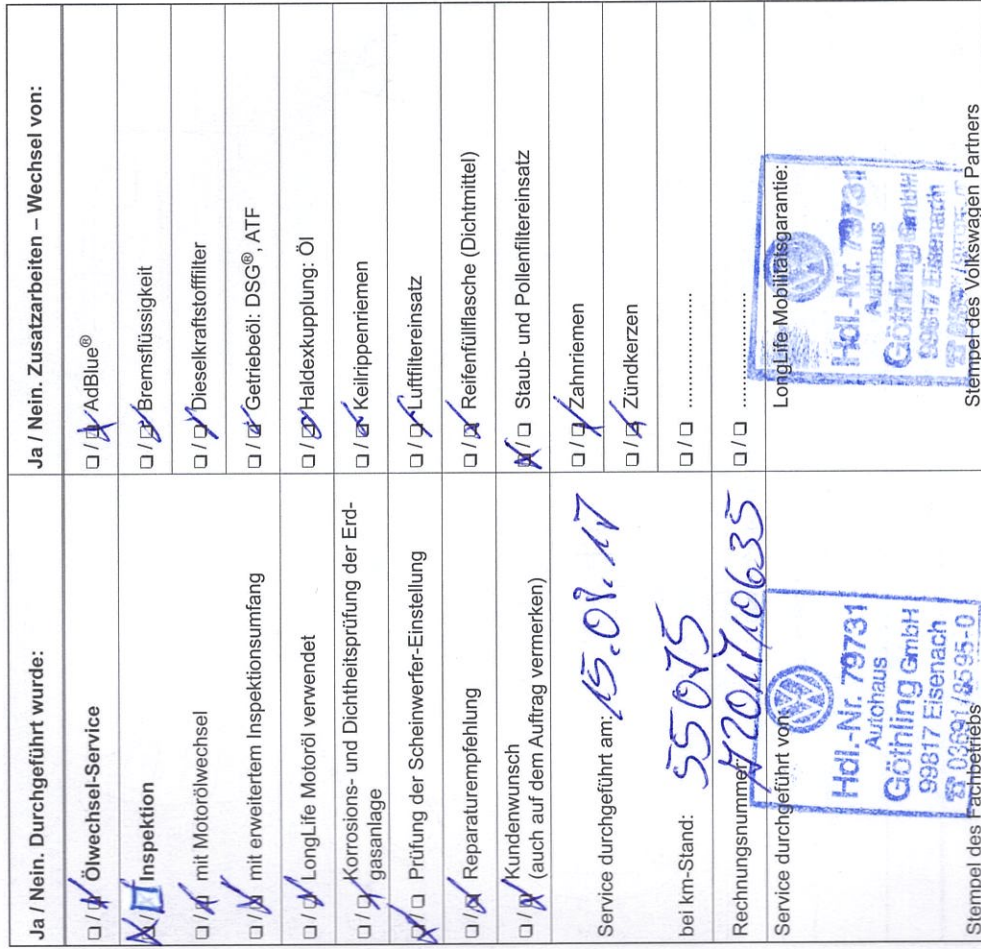 Ja / Nein. Durchgeführt wurde:
Ölwechsel-Service
Inspektion
mit Motorölwechsel
mit erweitertem Inspektionsumfang
LongLife Motoröl verwendet
Korrosions- und Dichtheitsprüfung der Erd-
gasanlage
Prüfung der Scheinwerfer-Einstellung
Reparaturempfehlung
Kundenwunsch
(auch auf dem Auftrag vermerken)
Service durchgeführt am:
bei km-Stand: 55075
Rechnungsnummer:
Service durchgeführt von:
Hdl.-Nr. 79731
Autohaus
Göthling GmbH
99817 Eisenach
☎ 03691/8595-0
Stempel des Fachbetriebs
Ja / Nein. Zusatzarbeiten – Wechsel von:
AdBlue®
Bremsflüssigkeit
Dieselkraftstofffilter
Getriebeöl: DSG®, ATF
Haldexkupplung: Öl
Keilrippenriemen
Luftfiltereinsatz
Reifenfüllflasche (Dichtmittel)
Staub- und Pollenfiltereinsatz
Zahnriemen
Zündkerzen
LongLife Mobilitätsgarantie:
Hdl.-Nr. 79731
Autohaus
Göthling GmbH
99817 Eisenach
Stempel des Volkswagen Partners